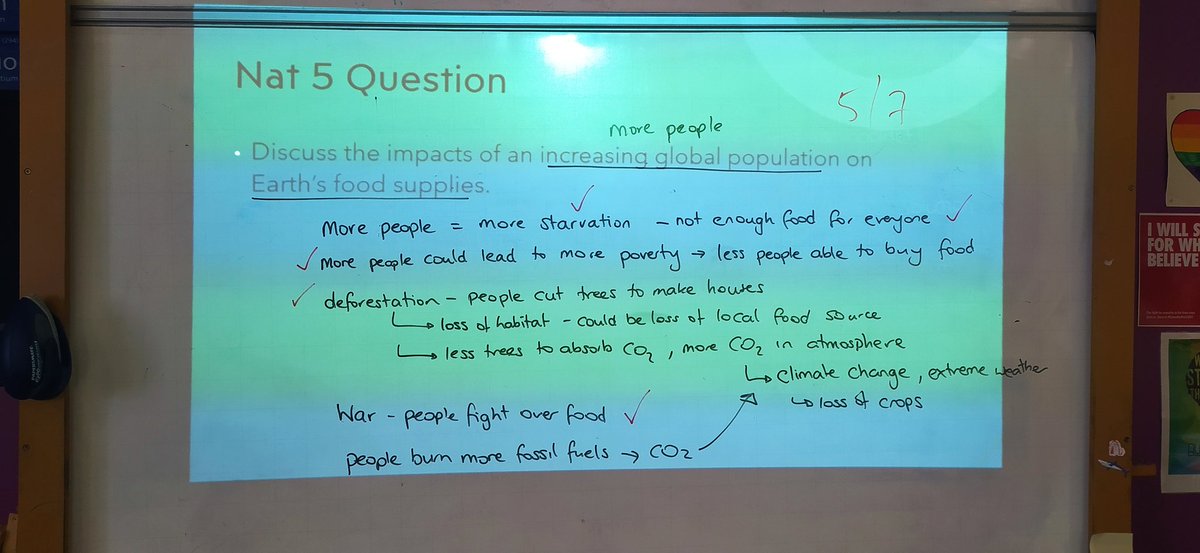 Nat 5 Question
5/7
more people
• Discuss the impacts of an increasing global population on
Earth's food supplies.
More people = more starvation - not enough food for everyone
More people could lead to more poverty → less people able to buy food
deforestation - people cut trees to make houses
↳ loss of habitat - could be loss of local food source
↳ less trees to absorb CO₂, more CO₂ in atmosphere
↳ climate change, extreme weather
↳ loss of crops
War - people fight over food
people burn more fossil fuels → CO₂
I WILL S
FOR WH
BELIEVE